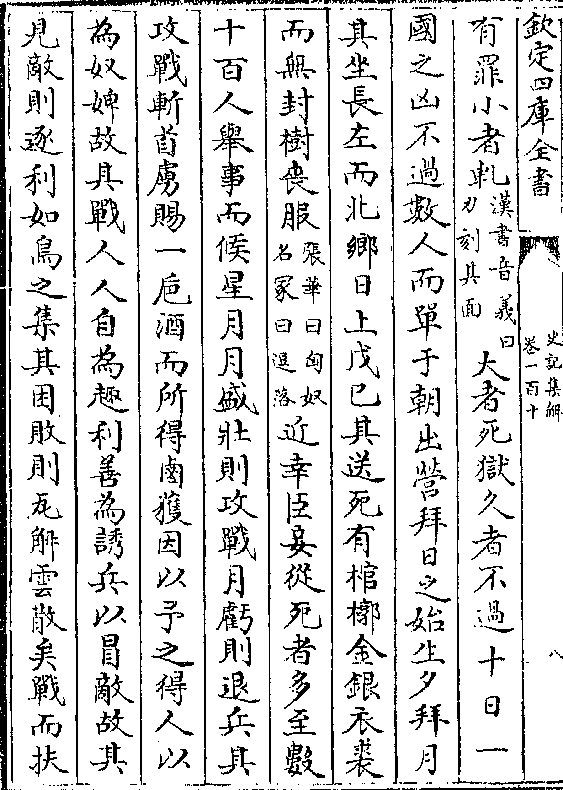 欽定四庫全書
史記集解
卷一百十
八
有罪小者軋漢書音義曰刀刻其面大者死獄久者不過十日一
國之凶不過數人而單于朝出營拜日之始生夕拜月
其坐長左而北鄉日上戊己其送死有棺槨金銀衣裘
而無封樹喪服張華曰匈奴名冢曰逗落近幸臣妾從死者多至數
十百人舉事而候星月月盛壯則攻戰月虧則退兵其
攻戰斬首虜賜一巵酒而所得鹵獲因以予之得人以
為奴婢故其戰人人自為趣利善為誘兵以冒敵故其
見敵則逐利如鳥之集其困敗則瓦解雲散矣戰而扶